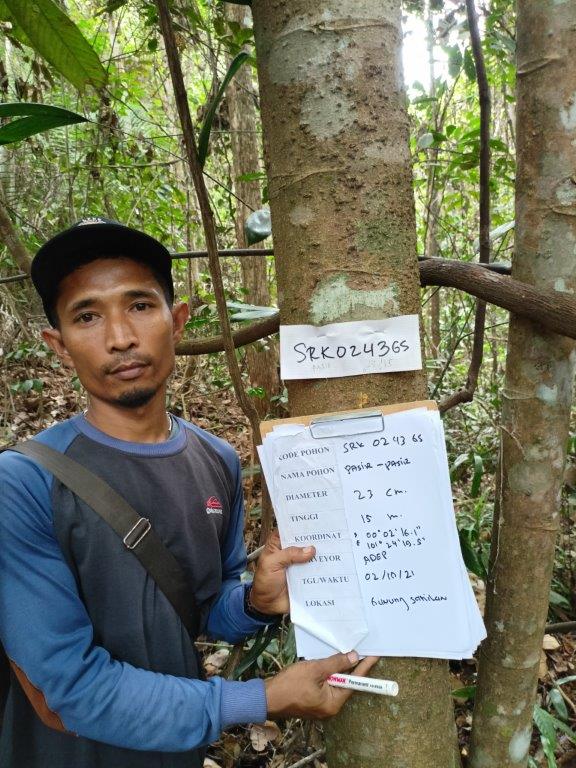 SRK0243GS
CODE POHON SRK 0243 GS
NAMA POHON PASIR-PASIR
DIAMETER 23 cm.
TINGGI 15 m.
KOORDINAT 00°02'16.1"
101°24'19.5"
VEYOR ADEP
TGL/WAKTU 02/10/21
LOKASI Gunung Sahilan
SNOWMAN Permanent